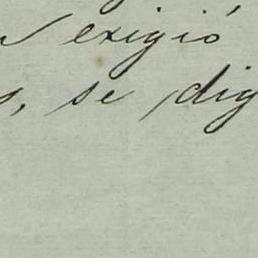 exigió
, se dig